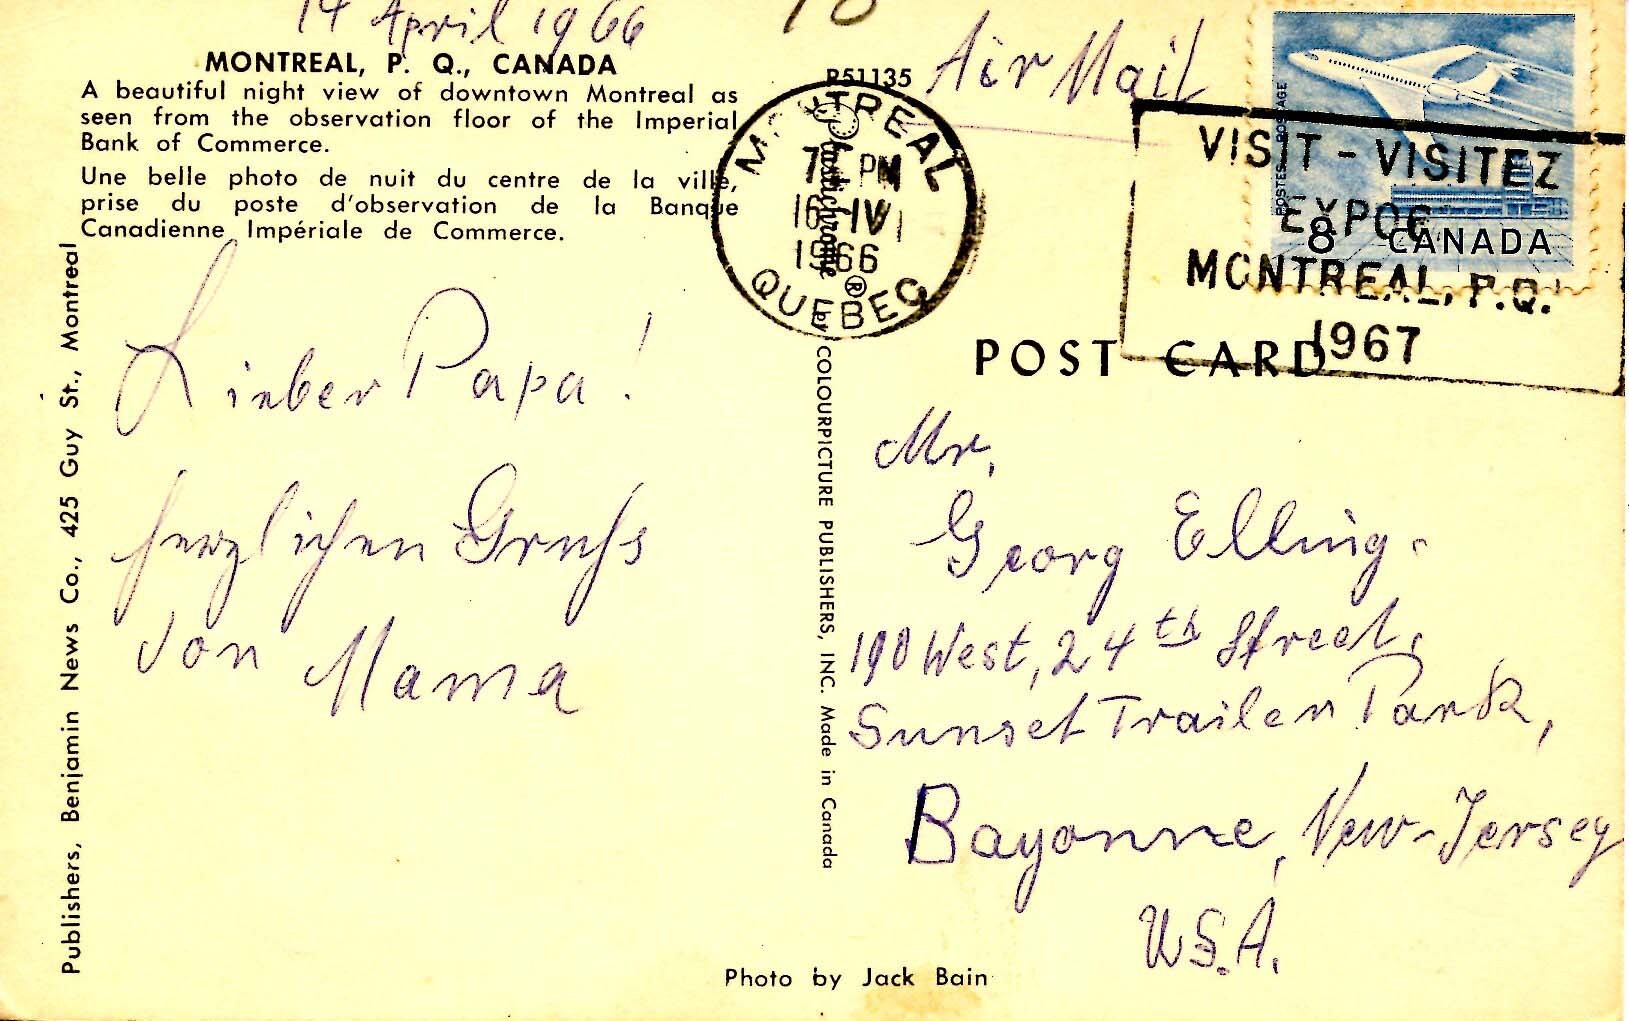 14 April 1966
MONTREAL, P. Q., CANADA
A beautiful night view of downtown Montreal as
seen from the observation floor of the Imperial
Bank of Commerce.
Une belle photo de nuit du centre de la ville,
prise du poste d'observation de la Banque
Canadienne Impériale de Commerce.
Publishers, Benjamin News Co., 425 Guy St., Montreal
Lieber Papa!
herzlichen Gruß
von Mama
P51135
Plastichrome ® by COLOURPICTURE PUBLISHERS, INC. Made in Canada
MONTREAL
PM
16 IV
1966
QUEBEC
Air Mail
POSTES POSTAGE
8 CANADA
VISIT - VISITEZ
EXPO
MONTREAL, P.Q.
1967
POST CARD
Mr.
Georg Elling.
190 West, 24th Street,
Sunset Trailer Park,
Bayonne, New-Jersey
U.S.A.
Photo by Jack Bain